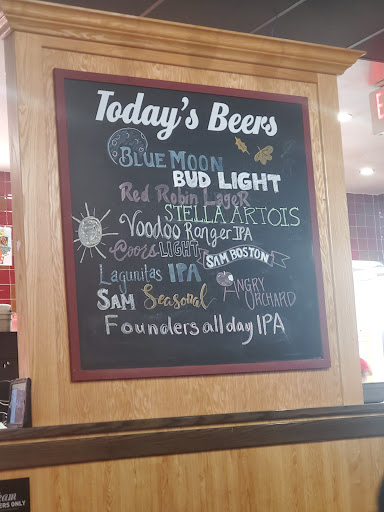 Today's Beers
BLUE MOON
BUD LIGHT
Red Robin LageR
STELLA ARTOIS
Voodoo Ranger IPA
Coors LIGHT
SAM BOSTON
Lagunitas IPA
ANGRY ORCHARD
SAM Seasonal
Founders all day IPA
ERS ONLY